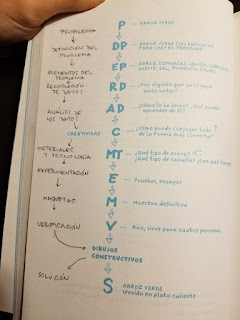 PROBLEMA
DEFINICIÓN DEL
PROBLEMA
ELEMENTOS DEL
PROBLEMA
RECOPILACIÓN
DE DATOS
ANÁLISIS DE
LOS DATOS
CREATIVIDAD
MATERIALES
Y TECNOLOGÍA
EXPERIMENTACIÓN
MAQUETAS
VERIFICACIÓN
SOLUCIÓN
P — ARROZ VERDE
DP — ARROZ VERDE CON ESPINACAS
PARA CUATRO PERSONAS
EP — ARROZ, ESPINACAS, JAMÓN, CEBOLLA,
ACEITE, SAL, PIMIENTA, CALDO
RD — ¿Hay alguien que lo haya
hecho antes?
AD — ¿Cómo lo ha hecho? ¿Qué puedo
aprender de él?
C — ¿Cómo puede conjugarse todo
de la forma más correcta?
MT — ¿Qué tipo de arroz?
¿Qué tipo de cazuela? ¿Con qué fuego?
E — Pruebas, ensayos
M — Muestra definitiva
V — Bien, sirve para cuatro personas
DIBUJOS
CONSTRUCTIVOS
S ARROZ VERDE
servido en plato caliente